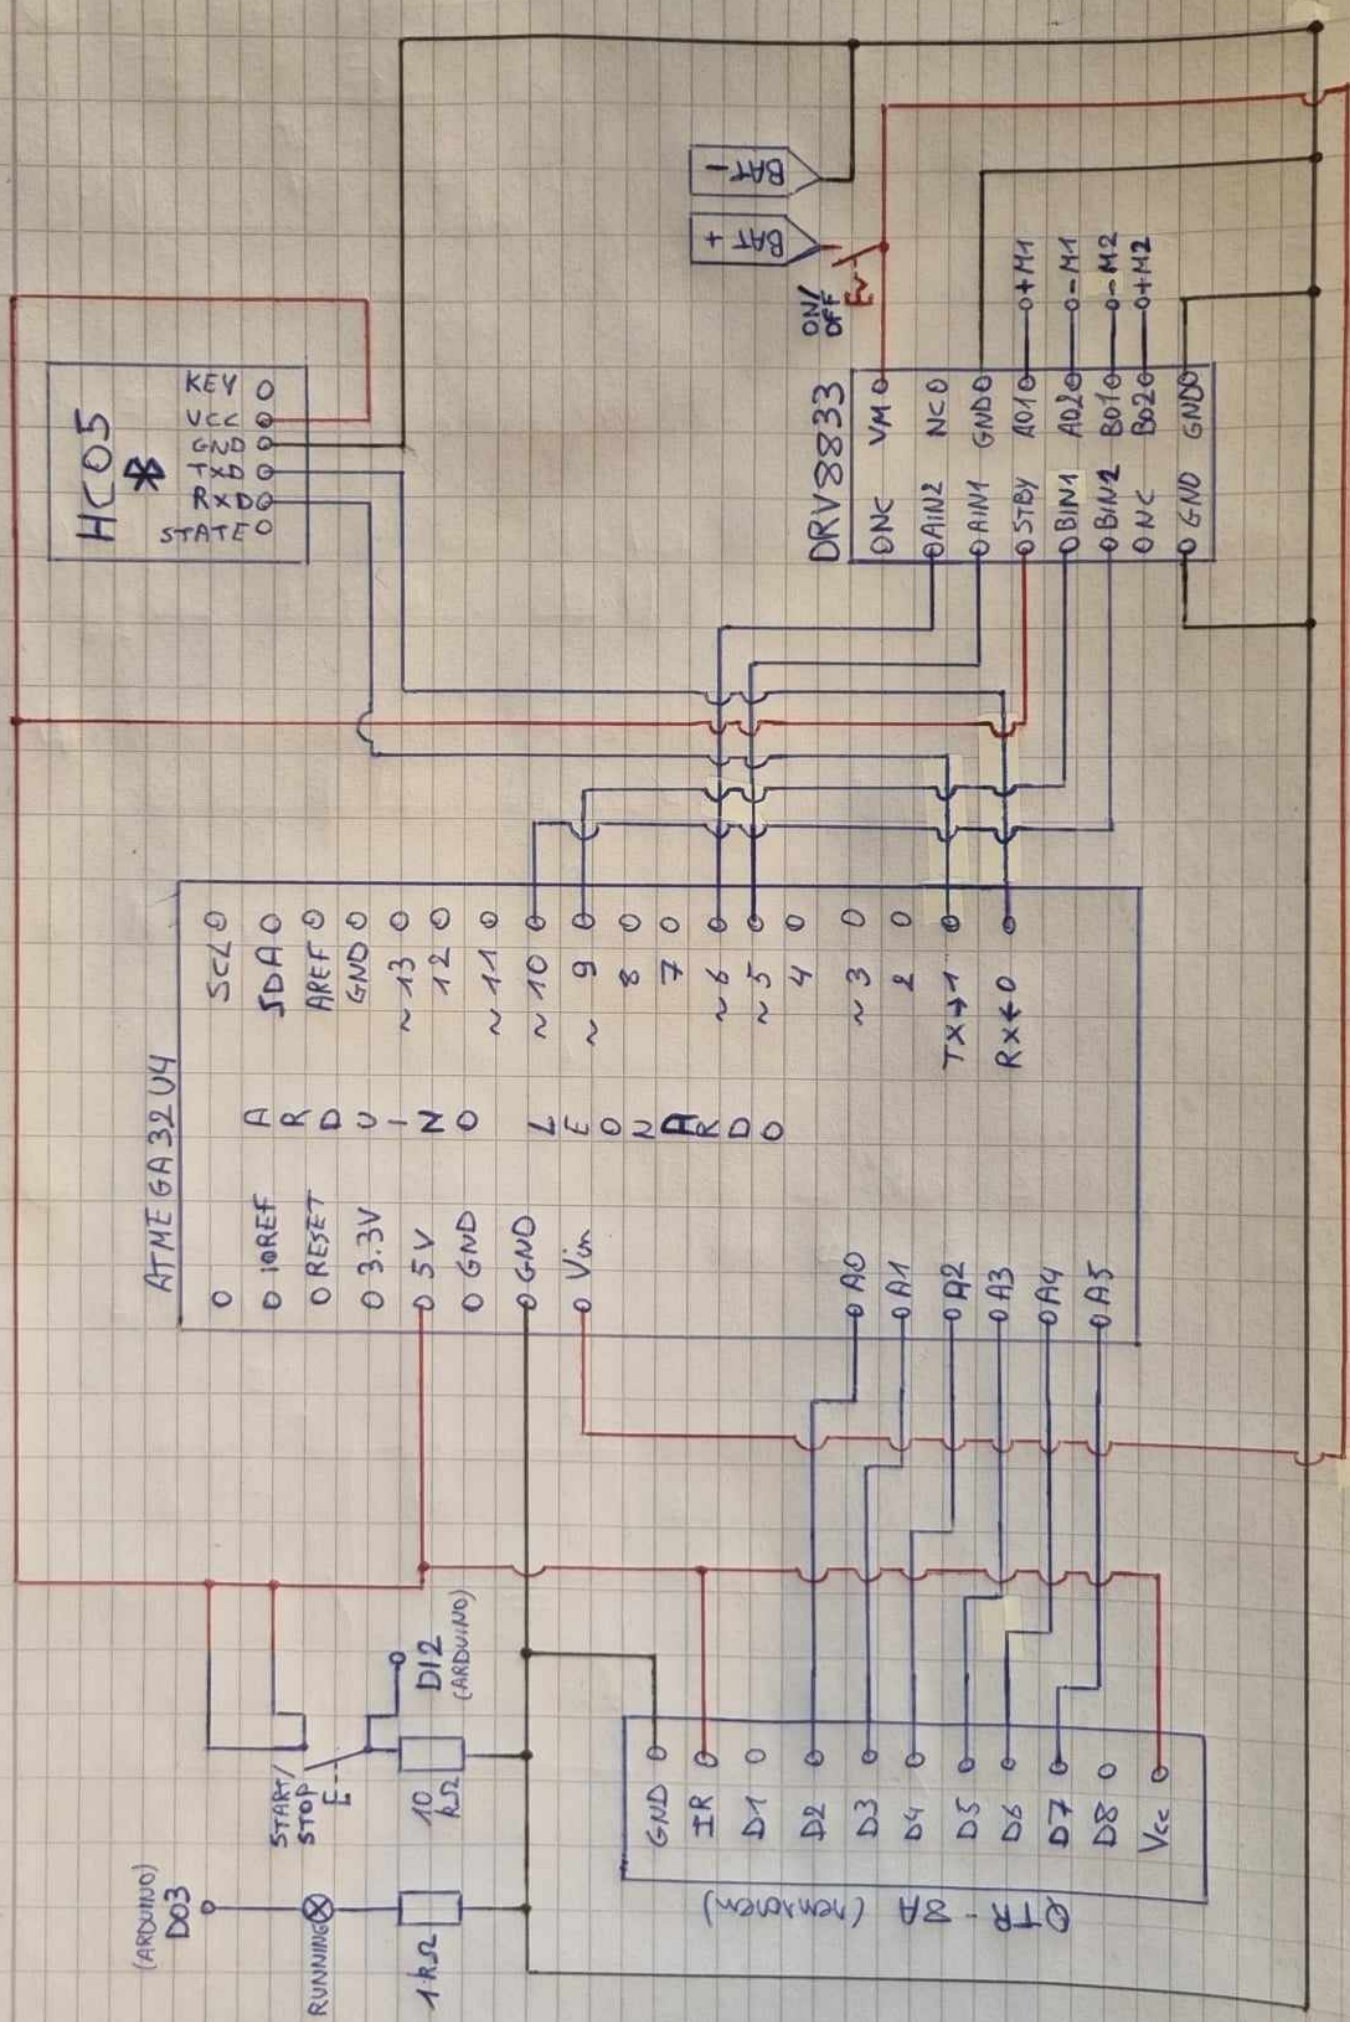 HC05
KEY
VCC
GND
TXD
RXD
STATE
BAT -
BAT +
ON/
OFF
E
DRV8833
NC VM
AIN2 NC
AIN1 GND
STBY AO1
BIN1 AO2
BIN2 BO1
NC BO2
GND GND
+M1
-M1
-M2
+M2
ATMEGA32U4
ARDUINO
LEONARDO
SCL
SDA
AREF
GND
~13
12
~11
~10
~9
8
7
~6
~5
4
~3
2
TX→1
RX←0
IOREF
RESET
3.3V
5V
GND
GND
Vin
A0
A1
A2
A3
A4
A5
(ARDUINO)
D03
RUNNING
1kΩ
START/
STOP
E
10
kΩ
D12
(ARDUINO)
QTR-8A (sensoren)
GND
IR
D1
D2
D3
D4
D5
D6
D7
D8
Vcc